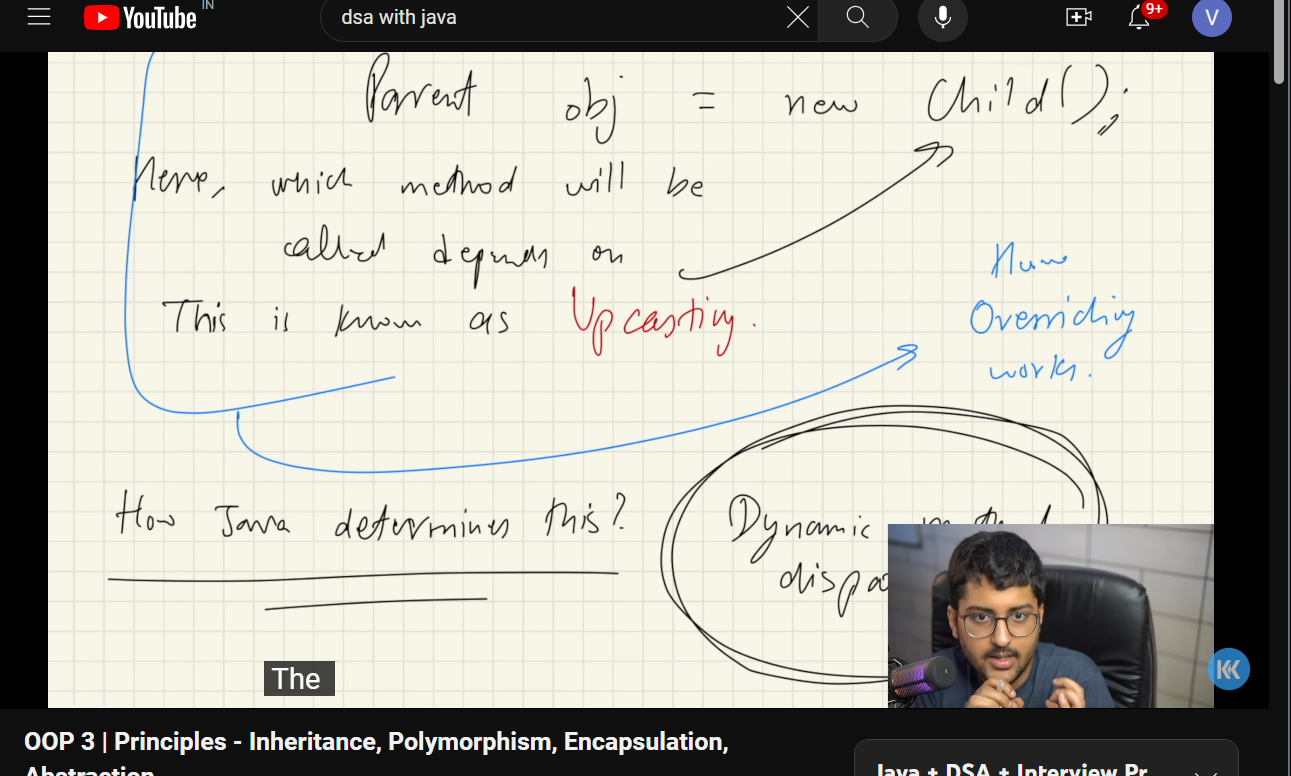 YouTube IN
dsa with java
9+
V
Parent obj = new Child();
Here, which method will be
called depends on
This is known as Upcasting.
How
Overriding
works.
How Java determines this?
Dynamic
dispa
The
OOP 3 | Principles - Inheritance, Polymorphism, Encapsulation,
Abstraction
Java + DSA + Interview Pr